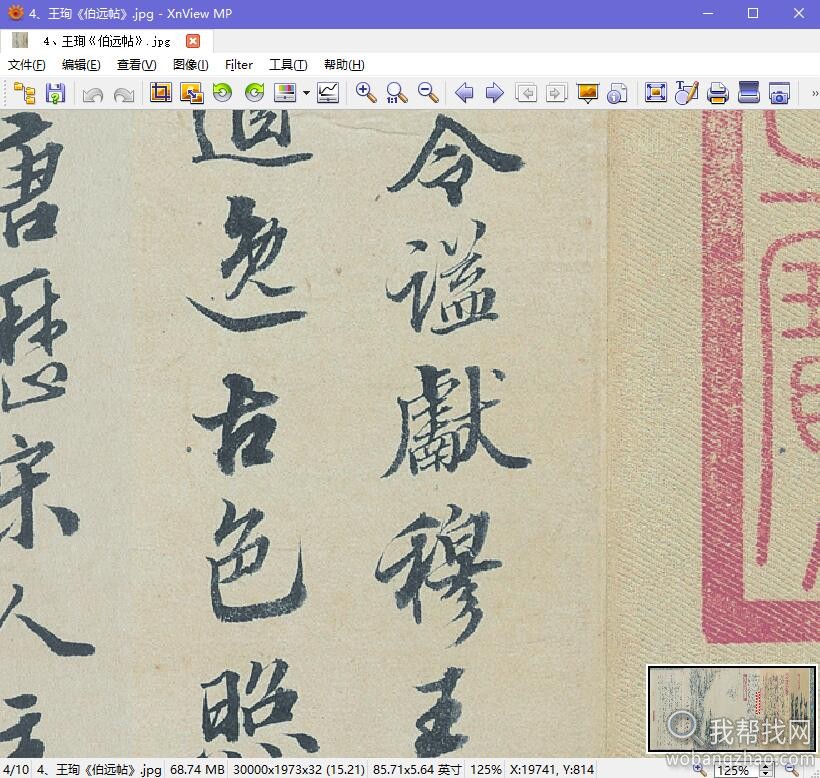 4、王珣《伯远帖》.jpg - XnView MP
4、王珣《伯远帖》.jpg
文件(F) 编辑(E) 查看(V) 图像(I) Filter 工具(T) 帮助(H)
1:1
»
令謚獻穆王
逎逸古色照
唐歷宋人
我帮找网
wobangzhao.com
4/10 4、王珣《伯远帖》.jpg 68.74 MB 30000x1973x32 (15.21) 85.71x5.64 英寸 125% X:19741, Y:814 125%